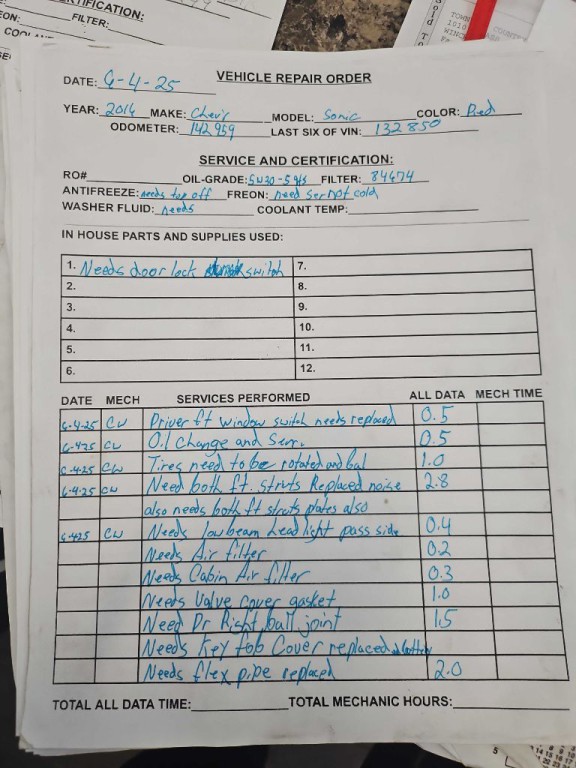 IFICATION:
FILTER:
VEHICLE REPAIR ORDER
DATE: 6-4-25
YEAR: 2016 MAKE: Chevr MODEL: Sonic COLOR: Red
ODOMETER: 142959 LAST SIX OF VIN: 132850
SERVICE AND CERTIFICATION:
RO# OIL-GRADE: 5w30-5qts FILTER: 84674
ANTIFREEZE: needs top off FREON: need Ser not cold
WASHER FLUID: needs COOLANT TEMP:
IN HOUSE PARTS AND SUPPLIES USED:
1. Needs door lock switch 7.
2. 8.
3. 9.
4. 10.
5. 11.
6. 12.
DATE MECH SERVICES PERFORMED ALL DATA MECH TIME
6-4-25 CW Driver ft window switch needs replaced 0.5
6-4-25 CW Oil Change and Serv. 0.5
6-4-25 CW Tires need to be rotated and bal 1.0
6-4-25 CW Need both ft. struts Replaced noise 2.8
also needs both ft struts plates also
6-4-25 CW Needs low beam head light pass side 0.4
Needs Air filter 0.2
Needs Cabin Air filter 0.3
Needs Valve cover gasket 1.0
Need Dr Right ball joint 1.5
Needs Key fob Cover replaced battery
Needs flex pipe replaced 2.0
TOTAL ALL DATA TIME: TOTAL MECHANIC HOURS: